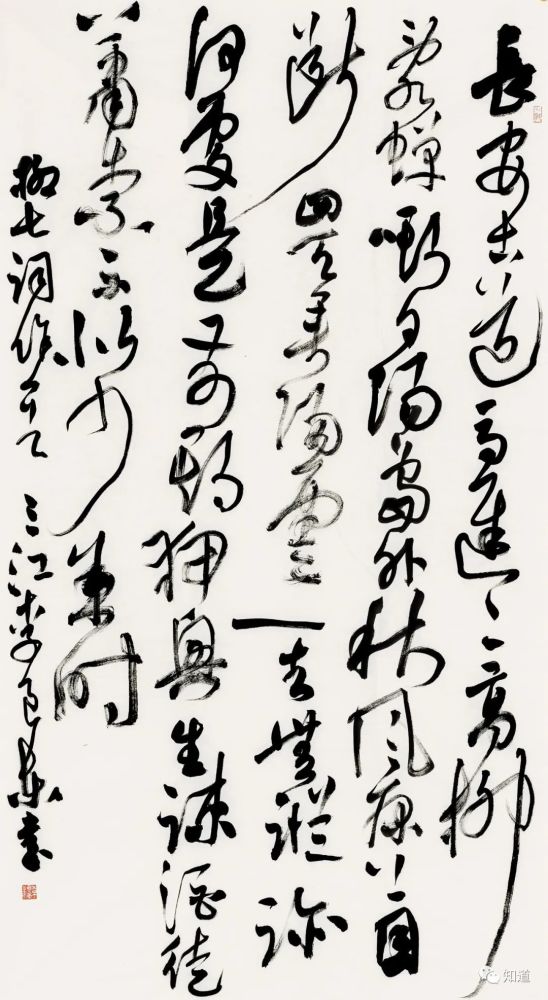 長安古道馬遲遲高柳
亂蟬嘶夕陽島外秋風原上目
斷四天垂歸雲一去無蹤迹
何處是前期狎興生疎酒徒
蕭索不似少年時
柳七詞 三江李 書
知道